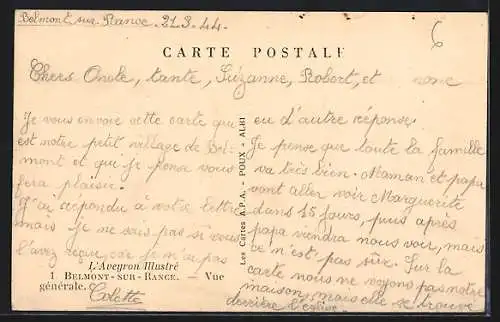 Belmont sur Rance. 21.3.44.
6
CARTE POSTALE
Chers Oncle, tante, Suzanne, Robert, et
Je vous envoie cette carte qui
est notre petit village de Bel-
mont et qui je pense vous
fera plaisir.
J'ai répondu à votre lettre
mais je ne sais pas si vous
l'avez reçue, car je n'ai pas
L'Aveyron Illustré
1 BELMONT-SUR-RANCE. — Vue
générale.
Colette
Les Cartes A.P.A. - POUX - ALBI
eu d'autre réponse.
Je pense que toute la famille
va très bien. Maman et papa
vont aller voir Marguerite
dans 15 jours, puis après
papa viendra nous voir, mais
ce n'est pas sûr. Sur la
carte nous ne voyons pas notre
maison, mais elle se trouve
derrière l'église.